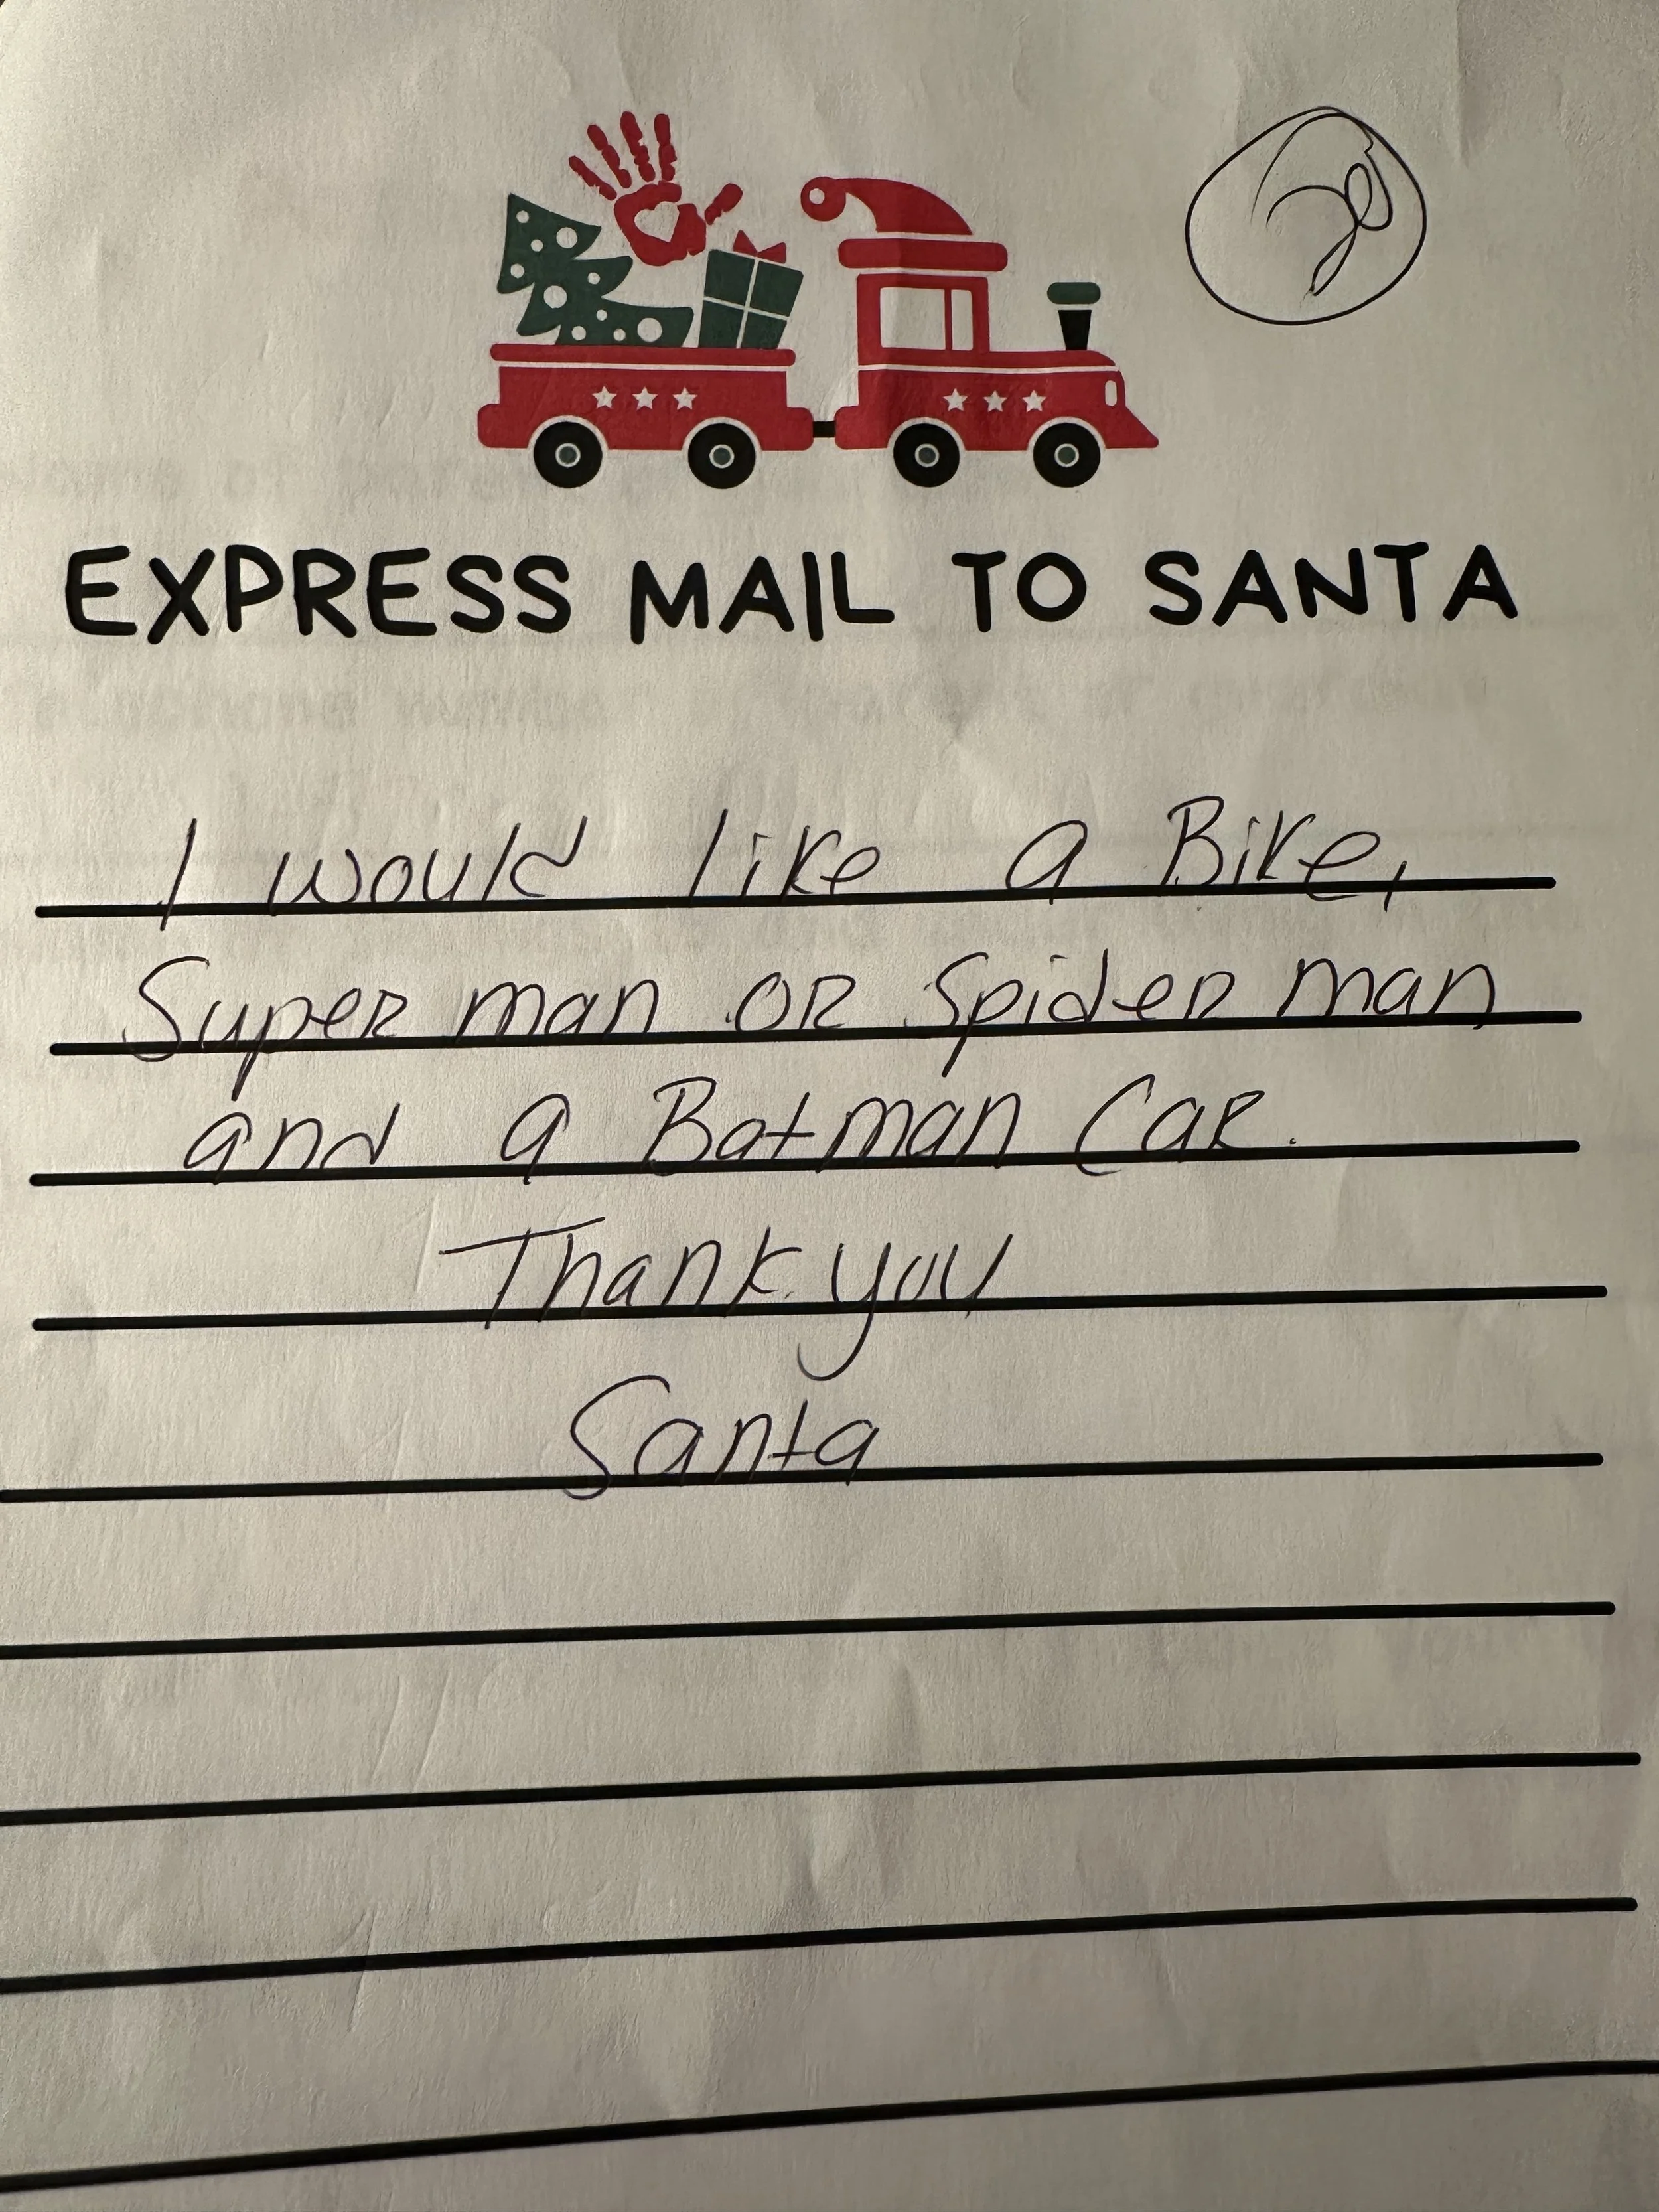 EXPRESS MAIL TO SANTA
I would like a Bike,
Super man OR Spider man
and a Batman Car.
Thank you
Santa